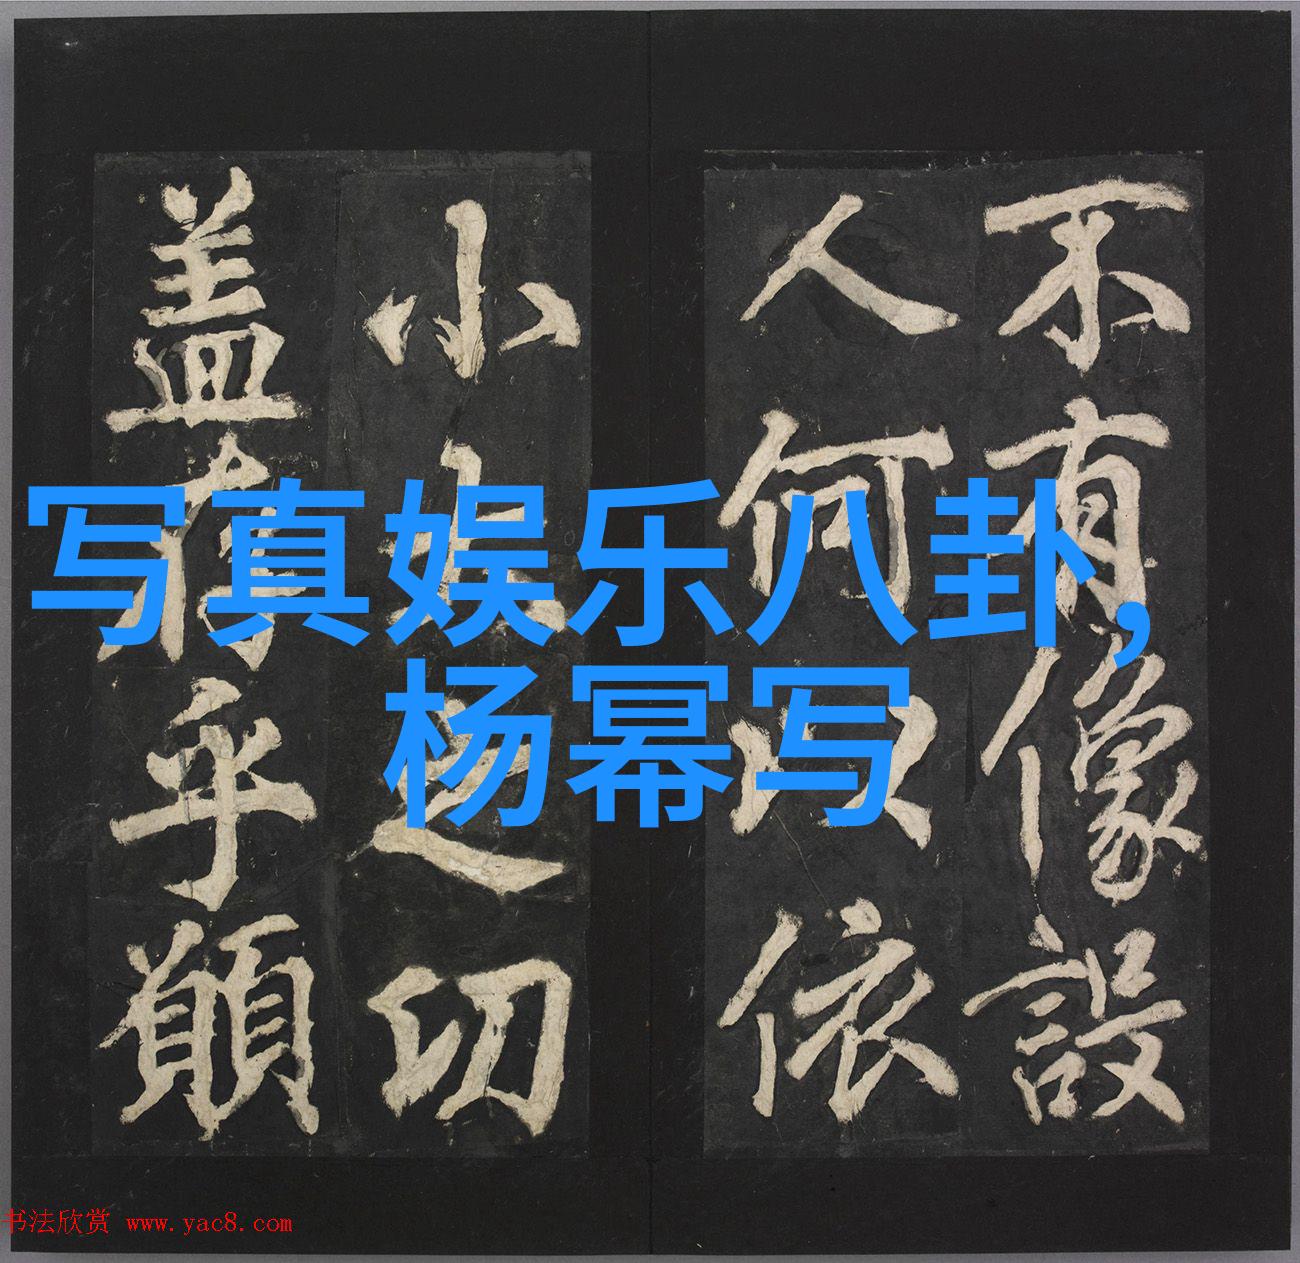 不有像設
人何以依
小大之切
盖乎願
写真娱乐八卦,
杨幂写
书法欣赏 www.yac8.com